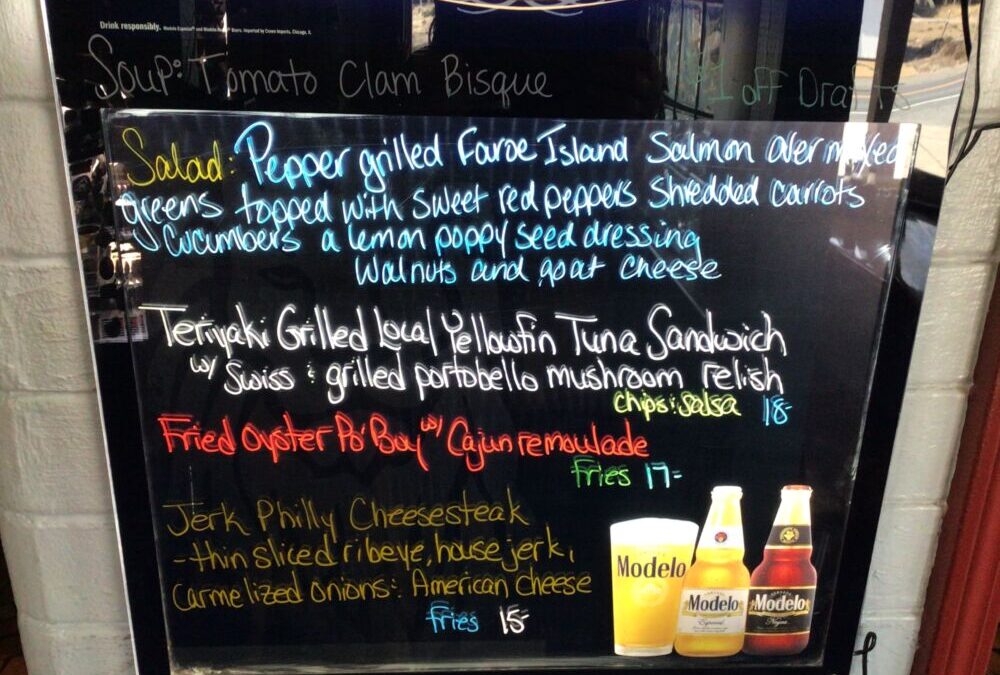 Drink responsibly. Modelo Especial® and Modelo Negra® Beers. Imported by Crown Imports, Chicago, IL
Soup: Tomato Clam Bisque
$1 off Drafts
Salad: Pepper grilled Faroe Island Salmon over mixed
greens topped with sweet red peppers shredded carrots
cucumbers a lemon poppy seed dressing
walnuts and goat cheese
Teriyaki Grilled Local Yellowfin Tuna Sandwich
w/ Swiss : grilled portobello mushroom relish
chips : salsa 18-
Fried Oyster Po' Boy w/ Cajun remoulade
Fries 17-
Jerk Philly Cheesesteak
- thin sliced ribeye, house jerk,
carmelized onions : American cheese
Fries 15-
Modelo
Modelo
Especial
Modelo
Negra